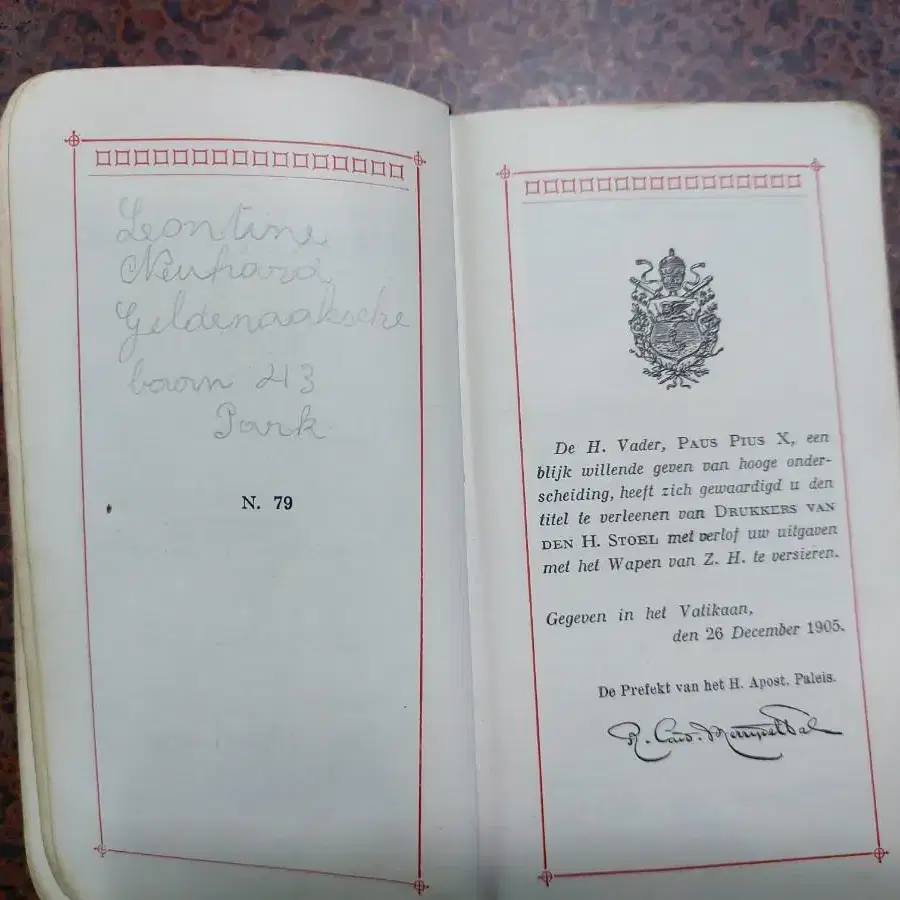 Leontine
Neuhard
Geldenaaksche
baan 43
Park
N. 79
De H. Vader, PAUS PIUS X, een
blijk willende geven van hooge onder-
scheiding, heeft zich gewaardigd u den
titel te verleenen van DRUKKERS VAN
DEN H. STOEL met verlof uw uitgaven
met het Wapen van Z. H. te versieren.
Gegeven in het Vatikaan,
den 26 December 1905.
De Prefekt van het H. Apost. Paleis.
R. Card. Merry del Val